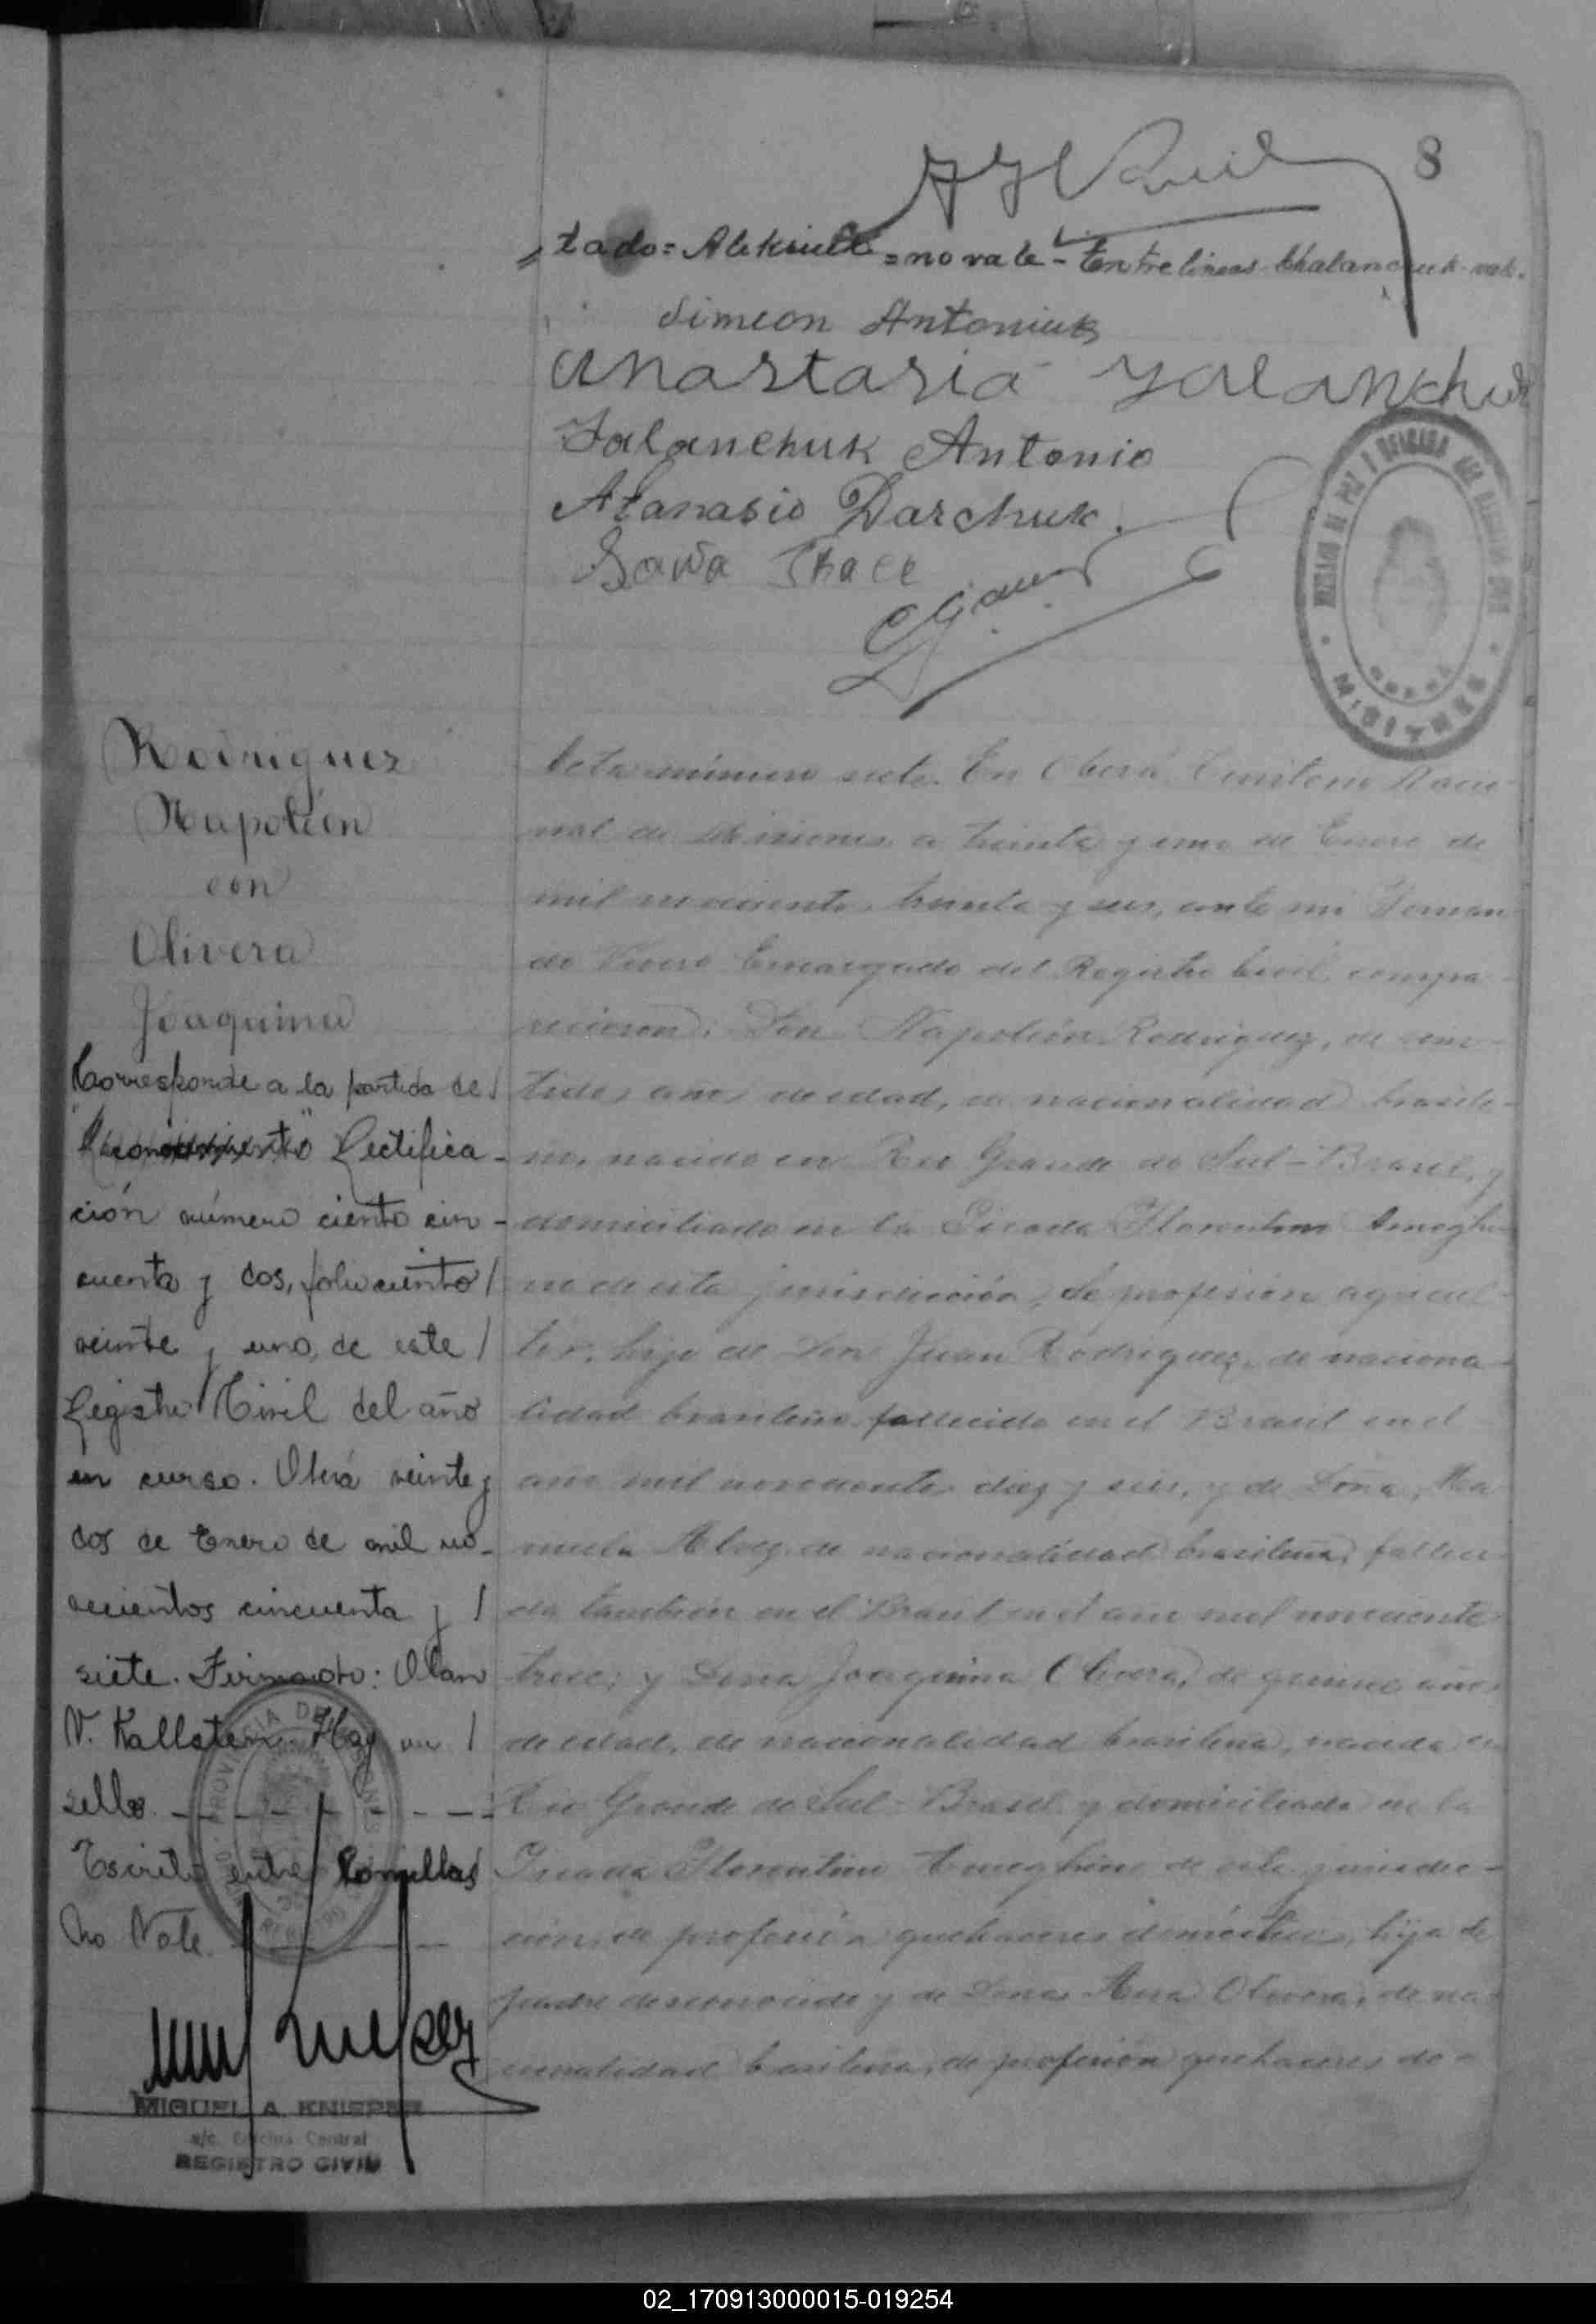 8
tado = Aleksiuk = no vale - Entrelineas Chalanchuk vale.
Simeon Antoniuk
Anastasia Yalanchuk
Jalanchuk Antonio
Atanasio Darchuk.
Sawa
MISIONES
Rodriguez
Napoleón
con
Olivera
Joaquina
Corresponde a la partida de
"Reconocimiento" Rectifica-
ción número ciento cin-
cuenta y dos, folio ciento
veinte y uno, de este
Registro Civil del año
en curso. Oberá veinte y
dos de Enero de mil no-
vecientos cincuenta y
siete. Firmado: Olan
V. Kallsten. Hay un
sello.
Escrito entre Comillas
No Vale.
MIGUEL A. KNIEPER
a/c. Oficina Central
REGISTRO CIVIL
Acta número siete. En Oberá, Territorio Nacio-
nal de Misiones, a treinta y uno de Enero de
mil novecientos treinta y seis, ante mi
Encargado del Registro Civil, compa-
recieron: Don Napoleón Rodriguez, de vein-
tidos años de edad, de nacionalidad brasile-
ro, nacido en Rio Grande do Sul - Brasil, y
domiciliado en la Picada Florentino Ameghi-
no de esta jurisdicción, de profesión agricul-
tor, hijo de Don Juan Rodriguez, de naciona-
lidad brasileño fallecido en el Brasil en el
año mil novecientos diez y seis, y de Doña, Ma-
nuela Alvez de nacionalidad brasileña, falleci-
da también en el Brasil en el año mil novecientos
trece; y Doña Joaquina Olivera, de quince años
de edad, de nacionalidad brasilena, nacida en
Rio Grande do Sul - Brasil y domiciliada en la
Picada Florentino Ameghino de esta jurisdic-
ción, de profesión quehaceres domésticos, hija de
padre desconocido y de Dona Ana Olivera, de na-
cionalidad brasilena, de profesión quehaceres do-
02_170913000015-019254